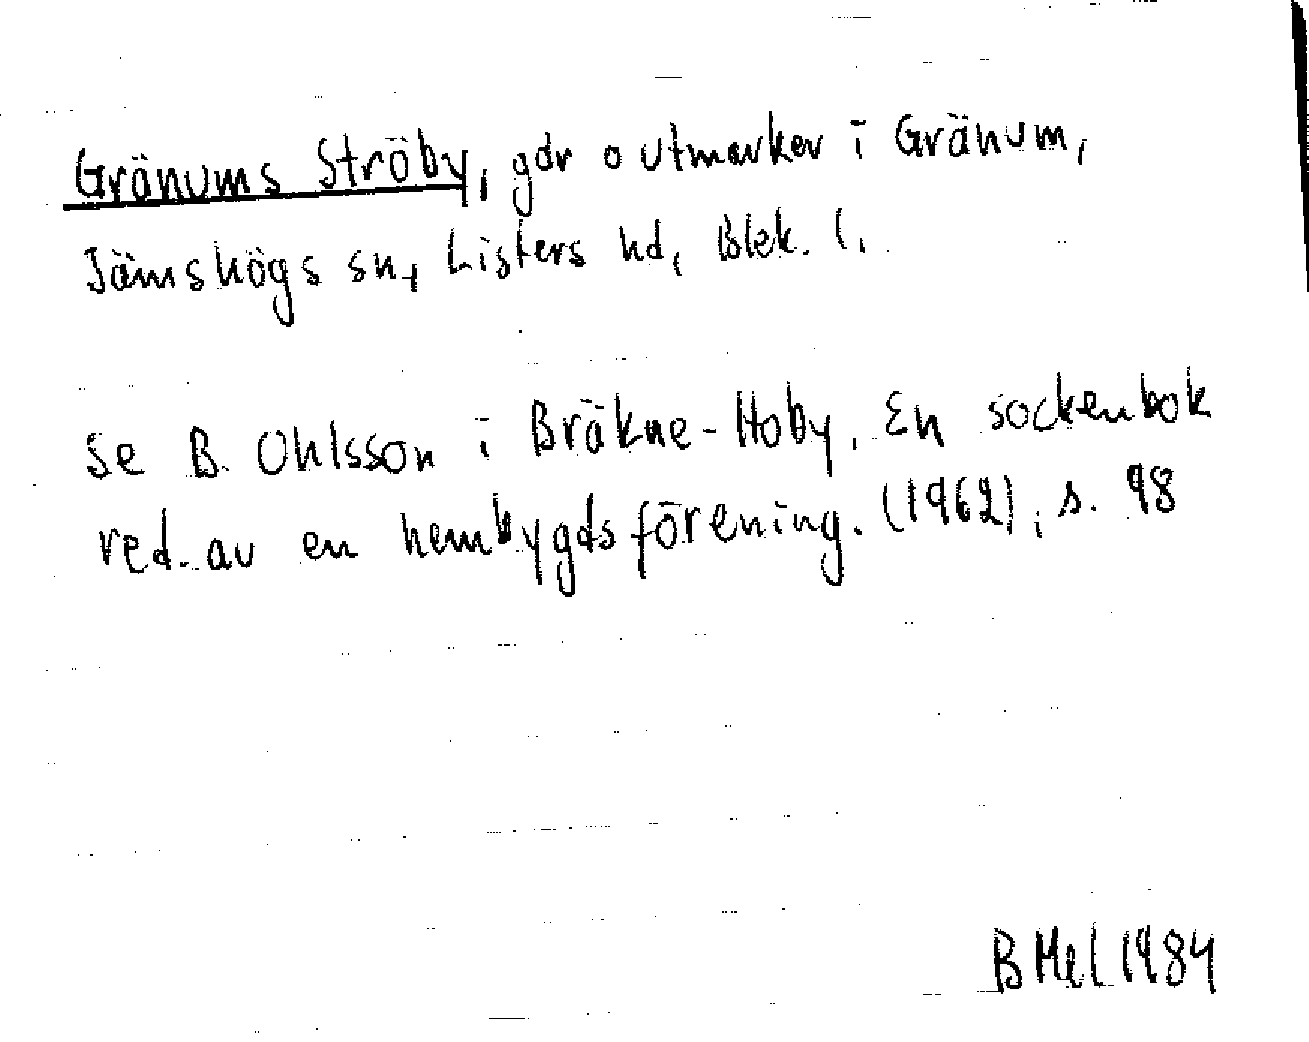 Gränums Ströby, gdr o utmarker i Gränum,
Jämshögs sn, Listers hd, Blek. l.
Se B. Ohlsson i Bräkne-Hoby. En sockenbok
red. av en hembygdsförening. (1962), s. 98
B Mel 1984